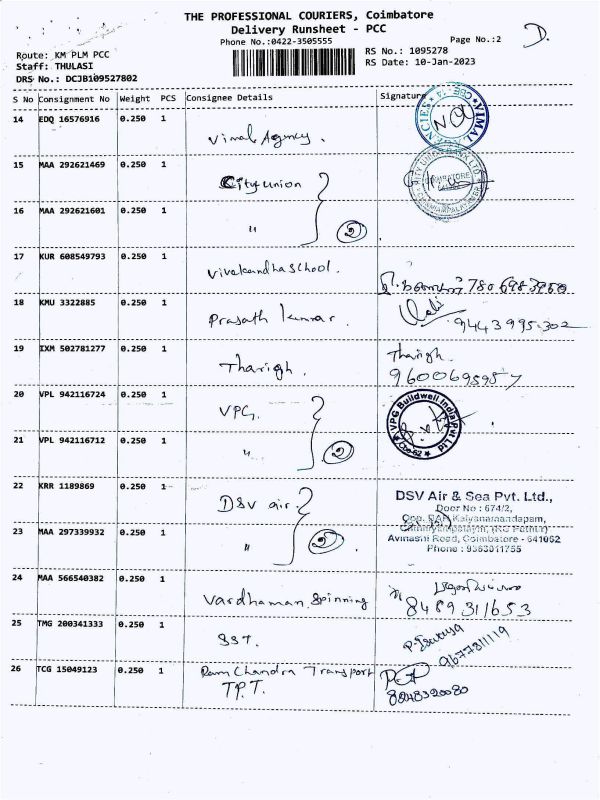 THE PROFESSIONAL COURIERS, Coimbatore
Delivery Runsheet - PCC
Phone No.:0422-3505555
Page No.:2
D.
Route: KM PLM PCC
Staff: THULASI
DRS No.: DCJB109527802
RS No.: 1095278
RS Date: 10-Jan-2023
S No Consignment No Weight PCS Consignee Details Signature
14 EDQ 16576916 0.250 1 Vimal Agency.
15 MAA 292621469 0.250 1 City union
16 MAA 292621601 0.250 1 " 2
17 KUR 608549793 0.250 1 Vivekandha school.
18 KMU 3322885 0.250 1 Prasath kumar. 9443995302
19 IXM 502781277 0.250 1 Tharigh. Tharigh.
20 VPL 942116724 0.250 1 VPG. VPG Buildwell India Pvt Ltd Cbe-62
21 VPL 942116712 0.250 1 " 2
22 KRR 1189869 0.250 1 DSV air. DSV Air & Sea Pvt. Ltd.,
Door No : 674/2,
23 MAA 297339932 0.250 1 " 2 Avinashi Road, Coimbatore - 641062
Phone : 9363011755
24 MAA 566540382 0.250 1 Vardhaman Spinning 8489311653
25 TMG 200341333 0.250 1 SST. 9677811119
26 TCG 15049123 0.250 1 Ram Chandra Transport
TPT.